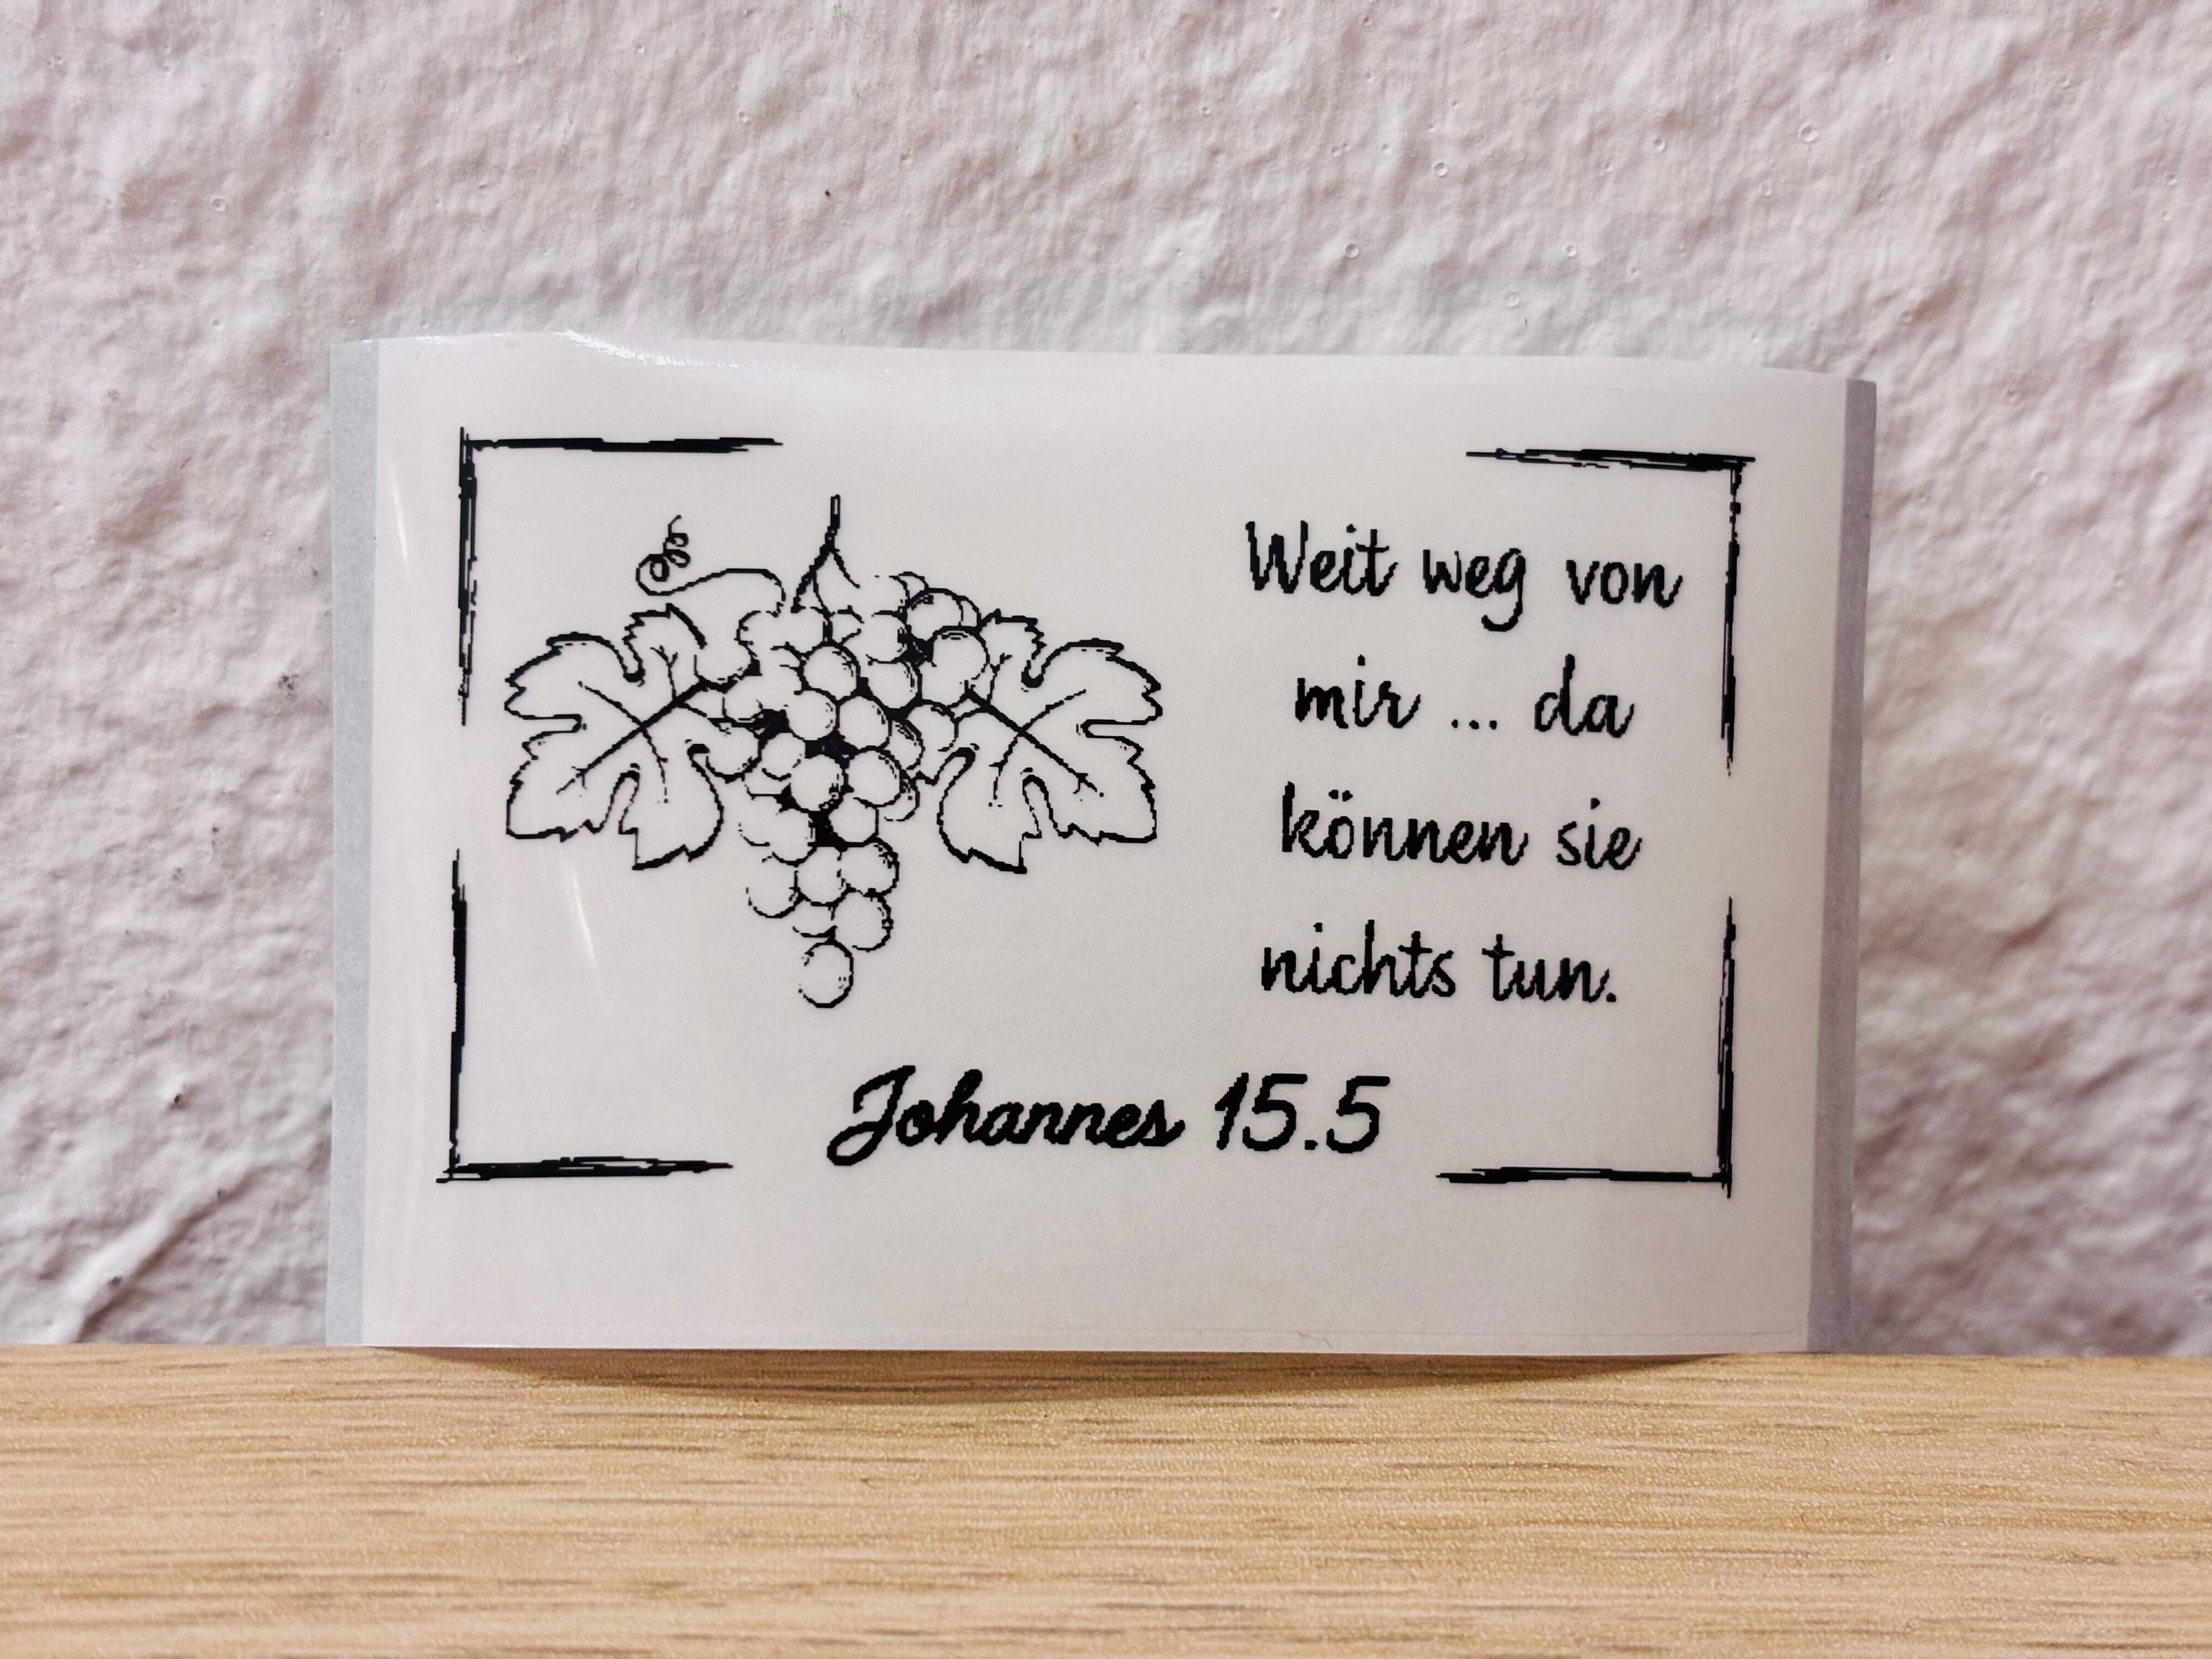 Weit weg von
mir ... da
können sie
nichts tun.
Johannes 15.5